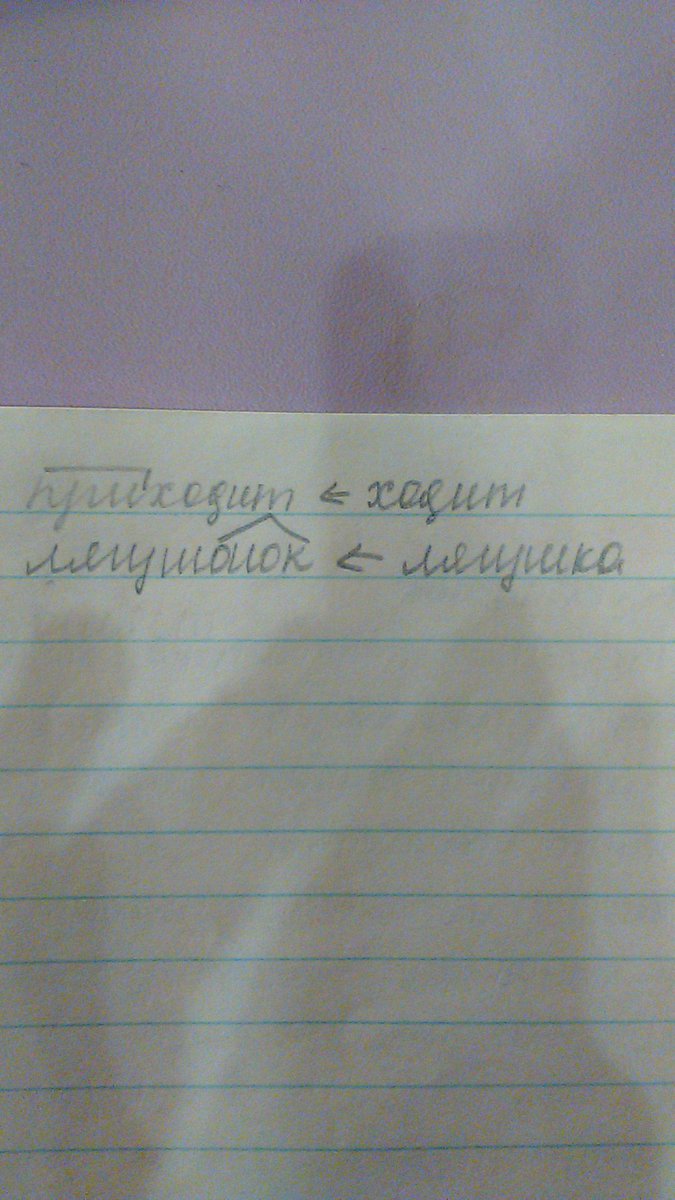 приходит ← ходит
лягушонок ← лягушка